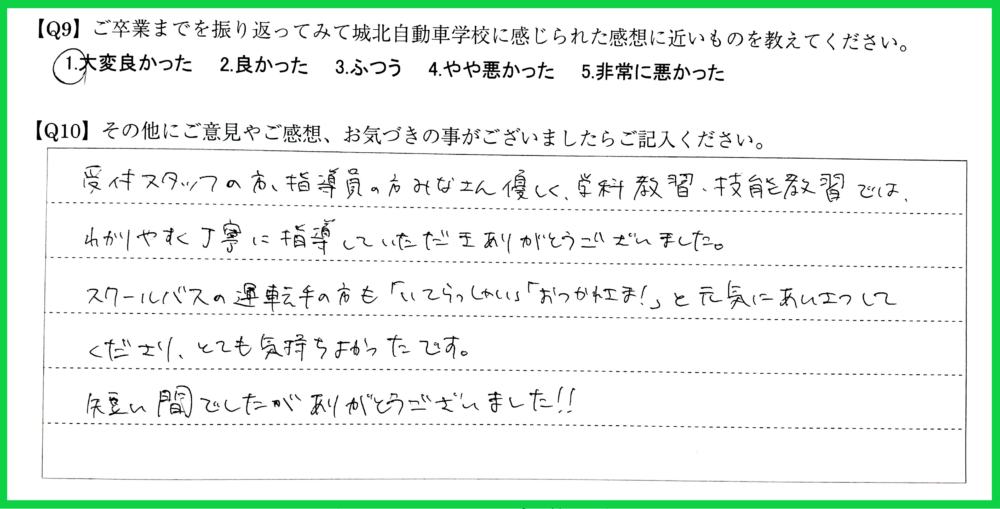 【Q9】ご卒業までを振り返ってみて城北自動車学校に感じられた感想に近いものを教えてください。
1.大変良かった 2.良かった 3.ふつう 4.やや悪かった 5.非常に悪かった
【Q10】その他にご意見やご感想、お気づきの事がございましたらご記入ください。
受付スタッフの方、指導員の方みなさん優しく、学科教習・技能教習では、
わかりやすく丁寧に指導していただきありがとうございました。
スクールバスの運転手の方も「いってらっしゃい」「おつかれさま!」と元気にあいさつして
くださり、とても気持ちよかったです。
短い間でしたがありがとうございました!!